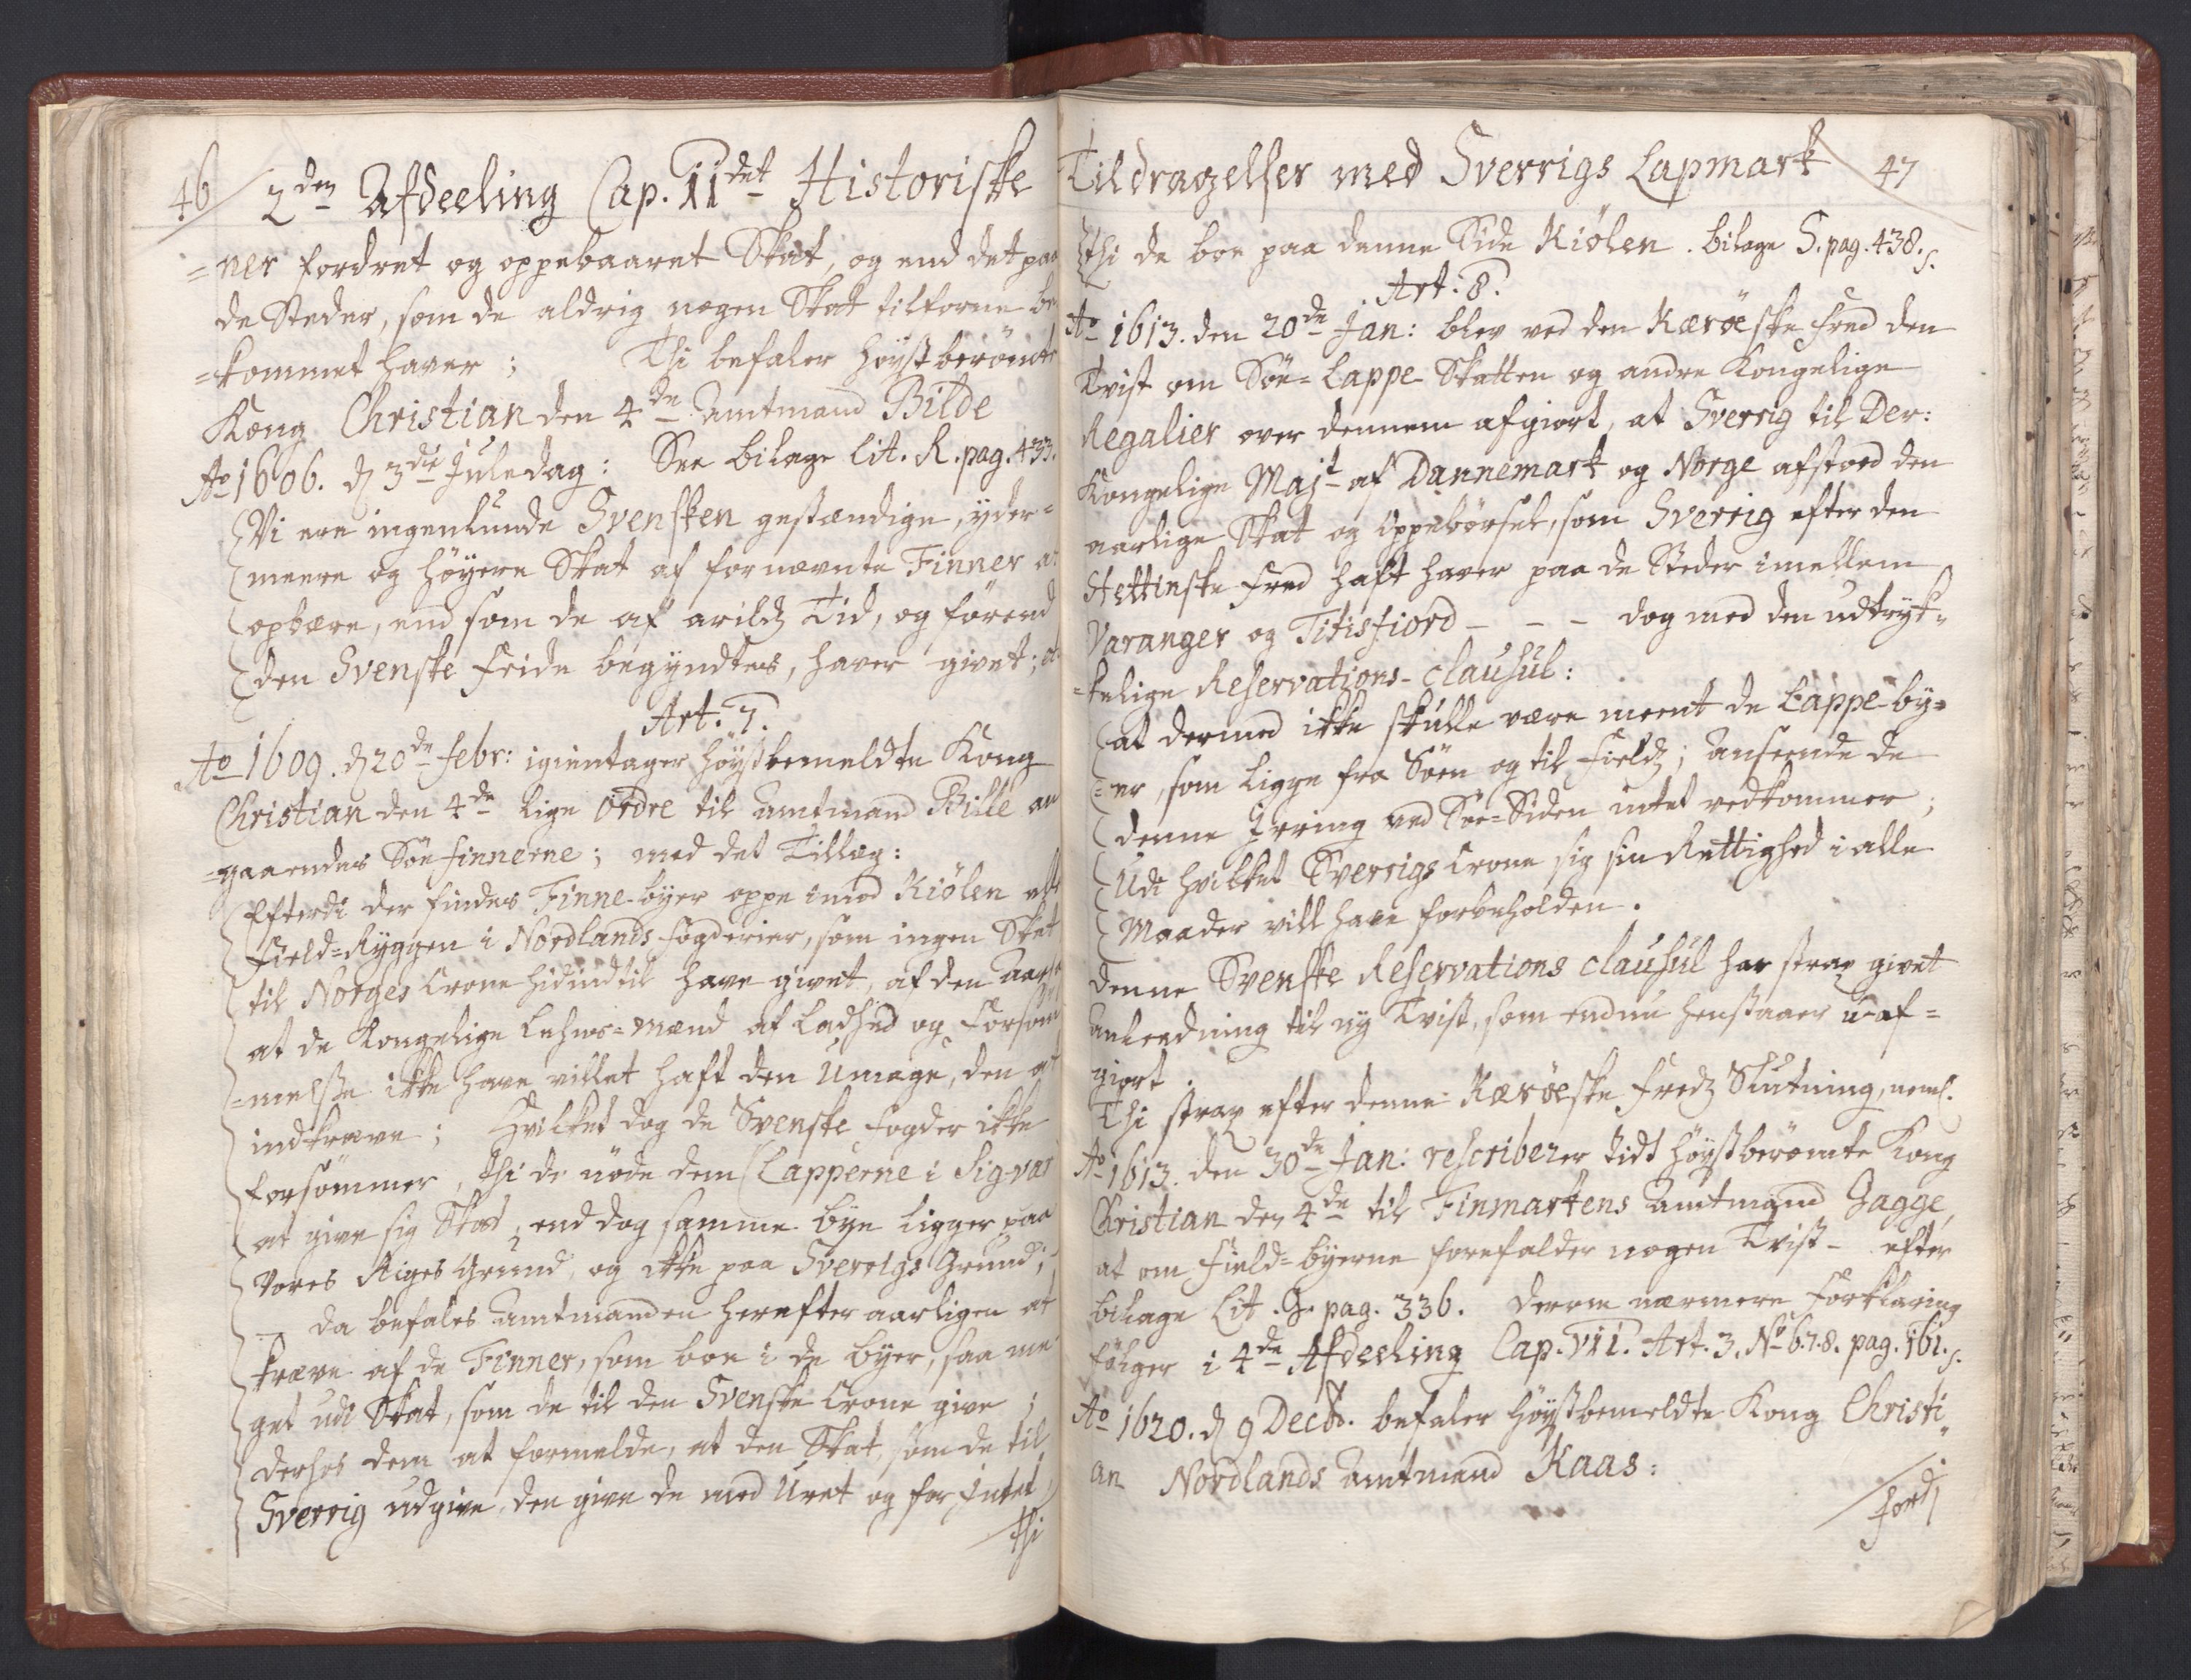 46
2den Afdeeling Cap. IIdet Historiske
=ner fordret og oppebaaret Skat, og end det paa
de Steder, som de aldrig nogen Skat tilforne be
=kommet haver; Thi befaler höystberömte
Kong Christian den 4de Amtmand Bilde
Ao 1606. d 3die Juledag: See bilage Lit. R. pag. 433.
Vi ere ingenlunde Svensken gestændige, yder=
meere og höyere Skat af fornævnte Finner at
opbære, end som de af arilds Tid, og förend
den Svenske Feide begyndtes, haver givet;
Art. 7.
Ao 1609. d 20de Febr: igientager höystbemeldte Kong
Christian den 4de lige Ordre til Amtmand Bille an
=gaaendes Söe finnerne; med det Tillæg:
Efterdi der findes Finne-byer oppe imod Kiölen eller
Field=Ryggen i Nordlands fogderier, som ingen Skat
til Norges Crone hidindtil have givet, af den Aarsag
at de Kongelige Lehns=mænd af Ladhed og Forsöm
=melse ikke have villet haft den Umage, den at
indkræve; Hvilket dog de Svenske Fogder ikke
forsömmer, Thi de nöde dem (Lapperne i Sig-var
at give sig Skat, end dog samme bye ligger paa
Vores Riges Grund, og ikke paa Sverrigs Grund;
— da befales Amtmanden herefter aarligen at
kræve af de Finner, som boe i de byer, saa me
get udi Skat, som de til den Svenske Crone give;
derhos dem at formelde, at den Skat, som de til
Sverrig udgive, den give de med Uret og for Intet
Thi
Tildragelser med Sverrigs Lapmark
47
Thi de boe paa denne Side Kiölen. bilage S. pag. 438.
Art: 8.
Ao 1613. den 20de Jan: blev ved den Kæröeske Fred den
Tvist om Söe=Lappe-Skatten og andre Kongelige
Regalier over dennem afgiort, at Sverrig til Der:
Kongelige Majt af Dannemark og Norge afstoed den
aarlige Skat og Oppebörsel, som Sverrig efter den
Stettinske Fred haft haver paa de Steder imellem
Varanger og Titisfiord - - - dog med den udtryk=
=kelige Reservations-clausul:
at dermed ikke skulle være meent de Lappe-by=
=er, som ligge fra Söen og til Fields; Anseende de
denne Irring ved Söe=Siden intet vedkommer;
Udi hvilket Sverrigs Crone sig sin Rettighed i alle
Maader vill have forbeholden.
denne Svenske Reservations clausul har strax givet
Anleedning til ny Tvist, som endnu henstaaer u-af=
giort.
Thi strax efter denne Kæröeske Freds Slutning, neml.
Ao 1613. den 30de Jan: rescriberer tidt höystberömte Kong
Christian den 4de til Finmarkens Amtmand Gagge,
at om Field=byerne forefalder nogen Tvist - efter
bilage Lit. G. pag. 336. derom nærmere Forklaring
fölger i 4de Afdeeling Cap. VII. Art. 3. No 6.7.8. pag. 161.
Ao 1620. d 9 Decb. befaler höystbemeldte Kong Christi=
an Nordlands Amtmand Kaas: